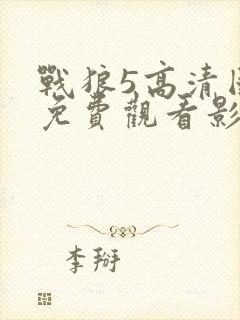 戰狼5高清
免費觀看影
李掰